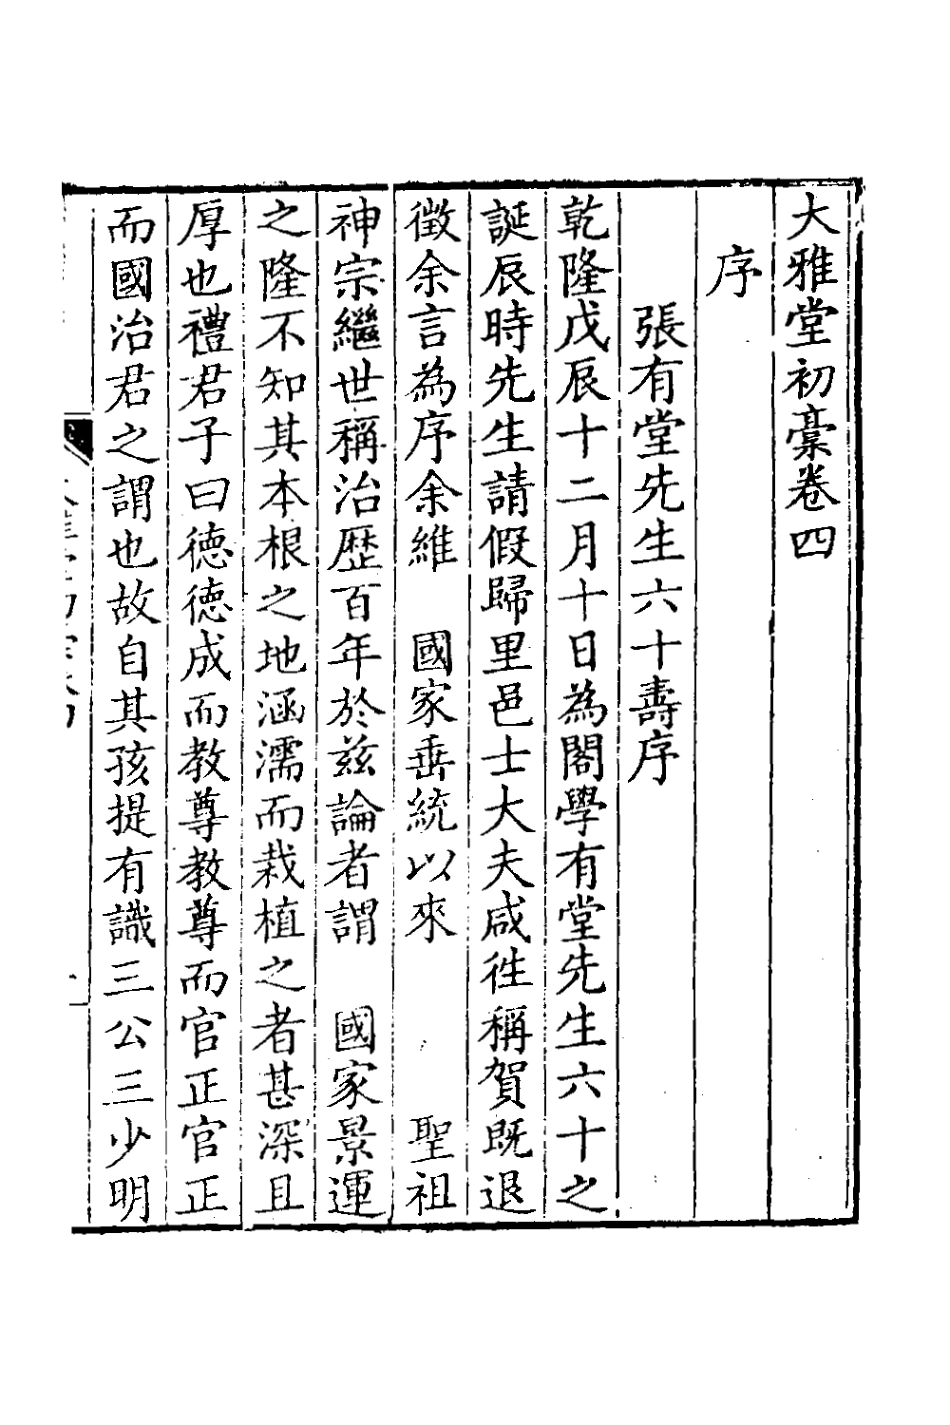 大雅堂初稾卷四
序
張有堂先生六十壽序
乾隆戊辰十二月十日為閣學有堂先生六十之
誕辰時先生請假歸里邑士大夫咸徃稱賀既退
徵余言為序余維　國家垂統以來　　　聖祖
神宗繼世稱治歴百年於兹論者謂　國家景運
之隆不知其本根之地涵濡而栽植之者甚深且
厚也禮君子曰德德成而教尊教尊而官正官正
而國治君之謂也故自其孩提有識三公三少明